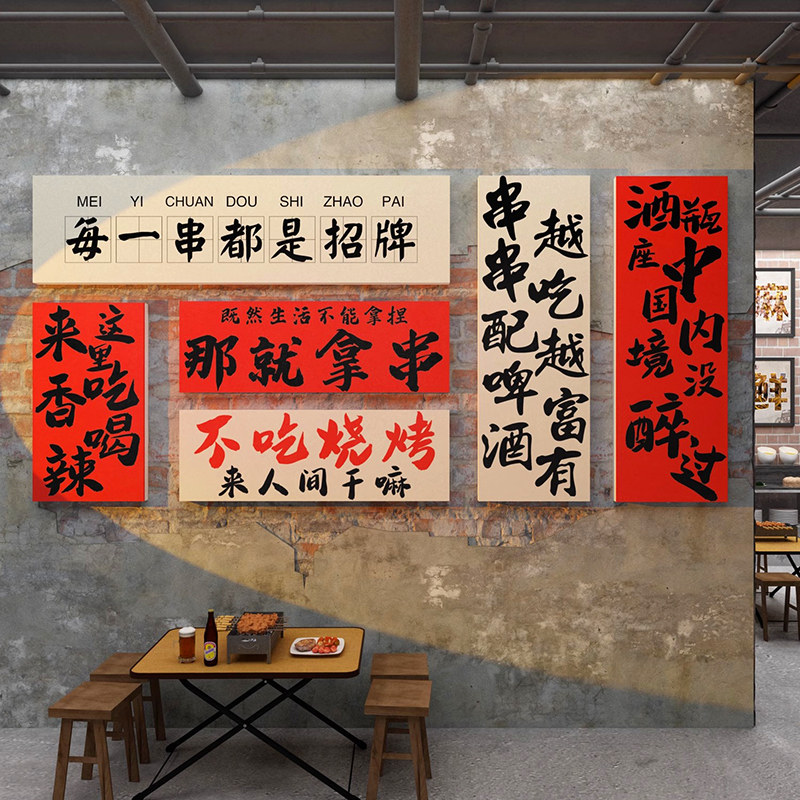 MEI YI CHUAN DOU SHI ZHAO PAI
每一串都是招牌
来这里吃香喝辣
既然生活不能拿捏
那就拿串
不吃烧烤
来人间干嘛
串串配啤酒
越吃越富有
酒瓶座
中国境内没醉过
鲜